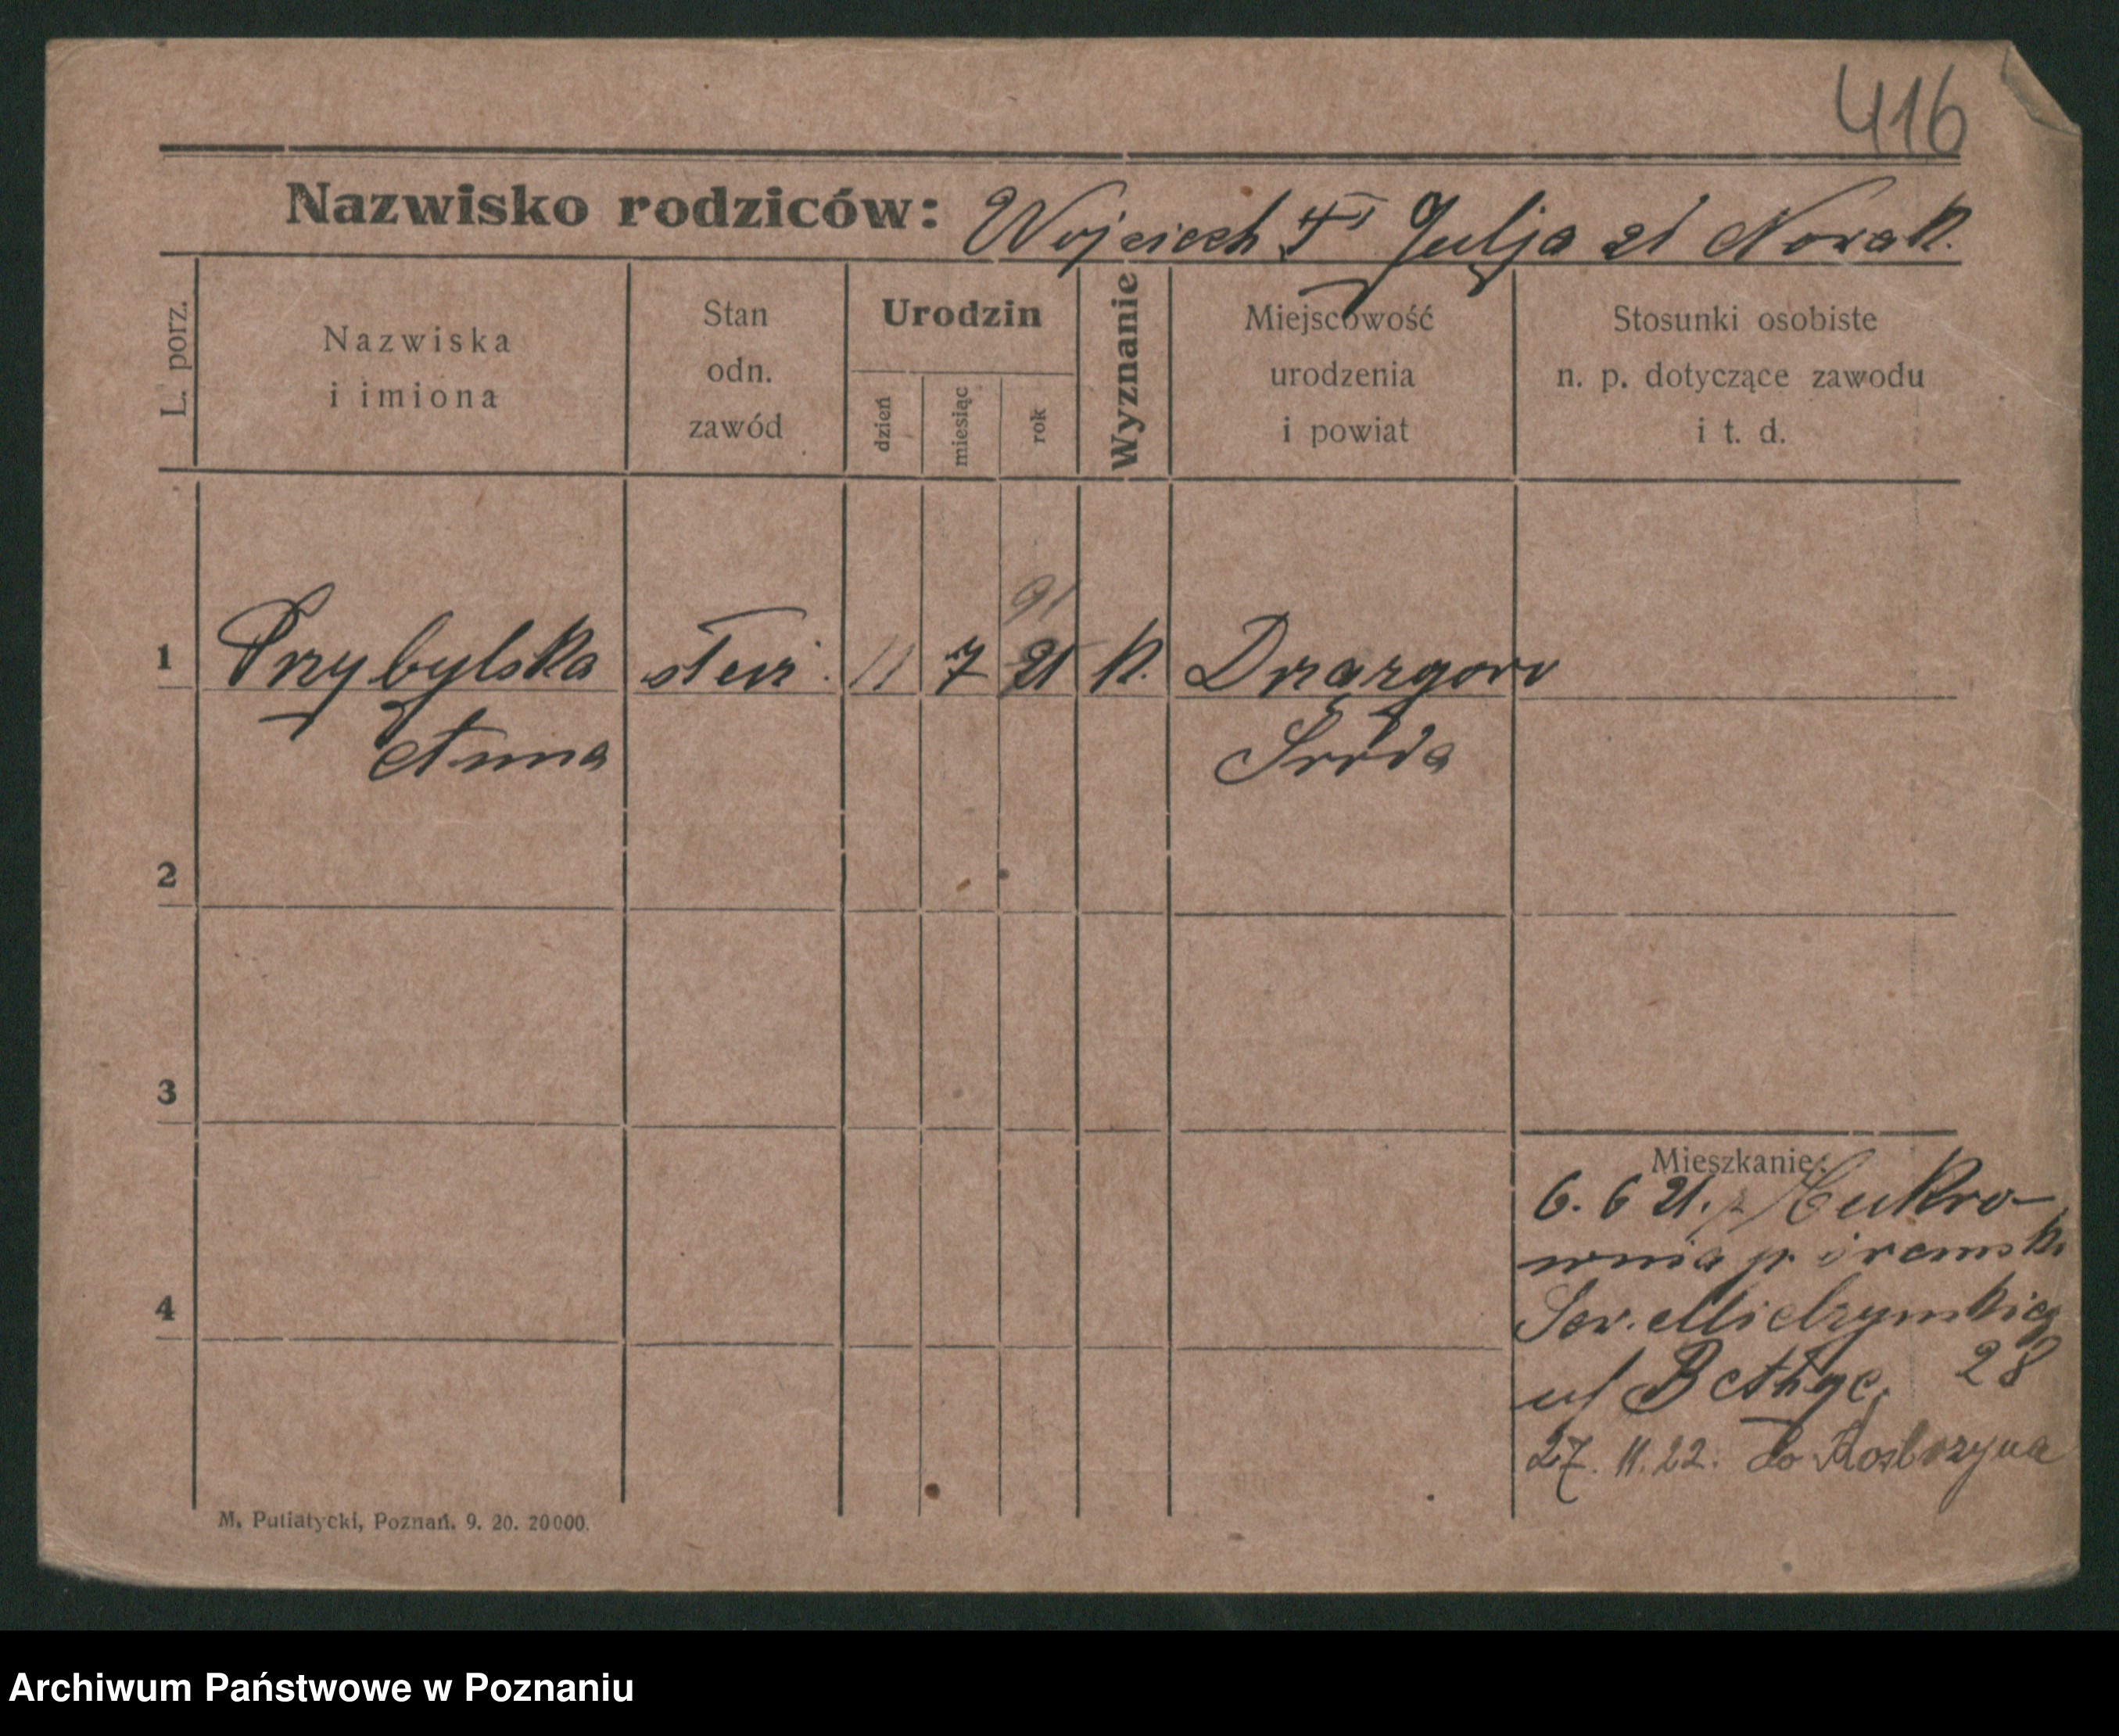 416
Nazwisko rodziców: Wojciech Julja zd Nowak.
L. porz.
Nazwiska
i imiona
Stan
odn.
zawód
Urodzin
dzień
miesiąc
rok
Wyznanie
Miejscowość
urodzenia
i powiat
Stosunki osobiste
n. p. dotyczące zawodu
i t. d.
91
1 Przybylska 11 7 21 k. Drzązgowo
Anna Środa
2
3
Mieszkanie:
6. 6 21. z Cukro-
wnia p. śremski
4
ul Bethge. 28
27. 11. 22. do Kostrzyna
M. Putiatycki, Poznań. 9. 20. 20000.
Archiwum Państwowe w Poznaniu